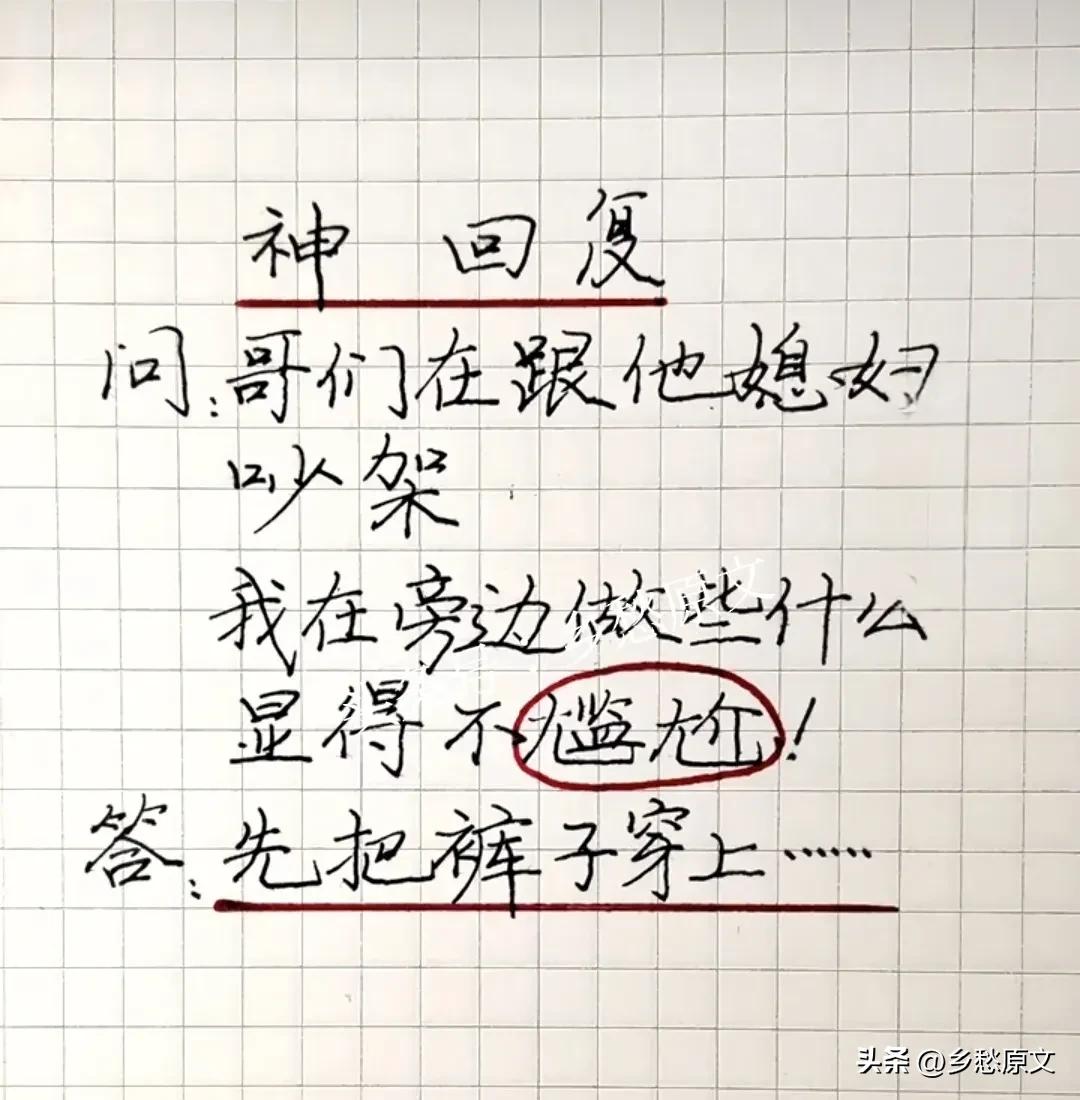 神回复
问:哥们在跟他媳妇
吵架
我在旁边做些什么
显得不尴尬!
答:先把裤子穿上……
头条 @乡愁原文